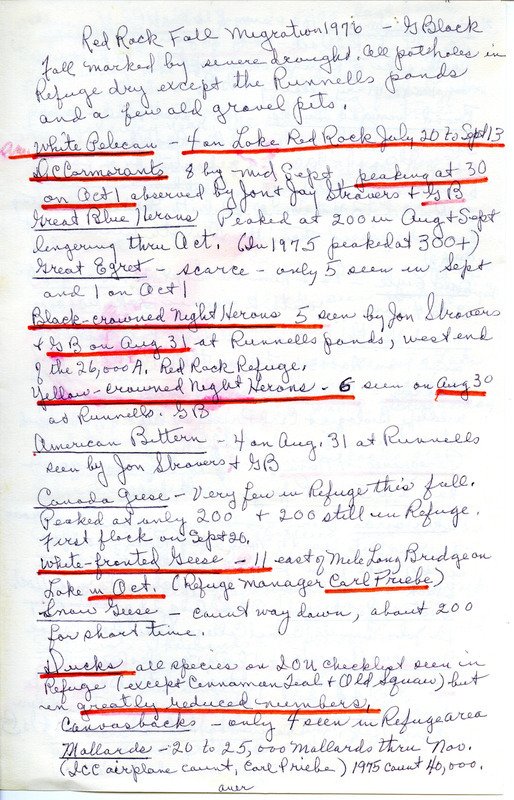 Red Rock Fall Migration 1976 - G Black
Fall marked by severe drought. All potholes in
Refuge dry except the Runnells ponds
and a few old gravel pits.
Am. White Pelecan - 4 on Lake Red Rock July 20 to Sept 13
DCCormorants 8 by mid Sept, peaking at 30
on Oct 1 observed by Jon & Jay Stravers & GB
Great Blue Herons Peaked at 200 in Aug & Sept
lingering thru Oct. (In 1975 peaked at 300+)
Great Egret - scarce - only 5 seen in Sept
and 1 on Oct 1
Black-crowned Night Herons 5 seen by Jon Stravers
& GB on Aug 31 at Runnells ponds, west end
of the 26,000 A. Red Rock Refuge.
Yellow-crowned Night Herons - 6 seen on Aug 30
at Runnells. GB
American Bittern - 4 on Aug. 31 at Runnells
seen by Jon Stravers & GB
Canada Geese - Very few in Refuge this fall.
Peaked at only 200 + 200 still in Refuge.
First flock on Sept 26.
White-fronted Geese - 11 east of Mile Long Bridge on
Lake in Oct. (Refuge manager Carl Priebe)
Snow Geese - count way down, about 200
for short time.
Ducks all species on IOU checklist seen in
Refuge (except Cennamon Teal & Old Squaw) but
in greatly reduced numbers.
Canvasbacks - only 4 seen in Refuge area
Mallards - 20 to 25,000 Mallards thru Nov.
(ICC airplane count, Carl Priebe) 1975 count 40,000.
over